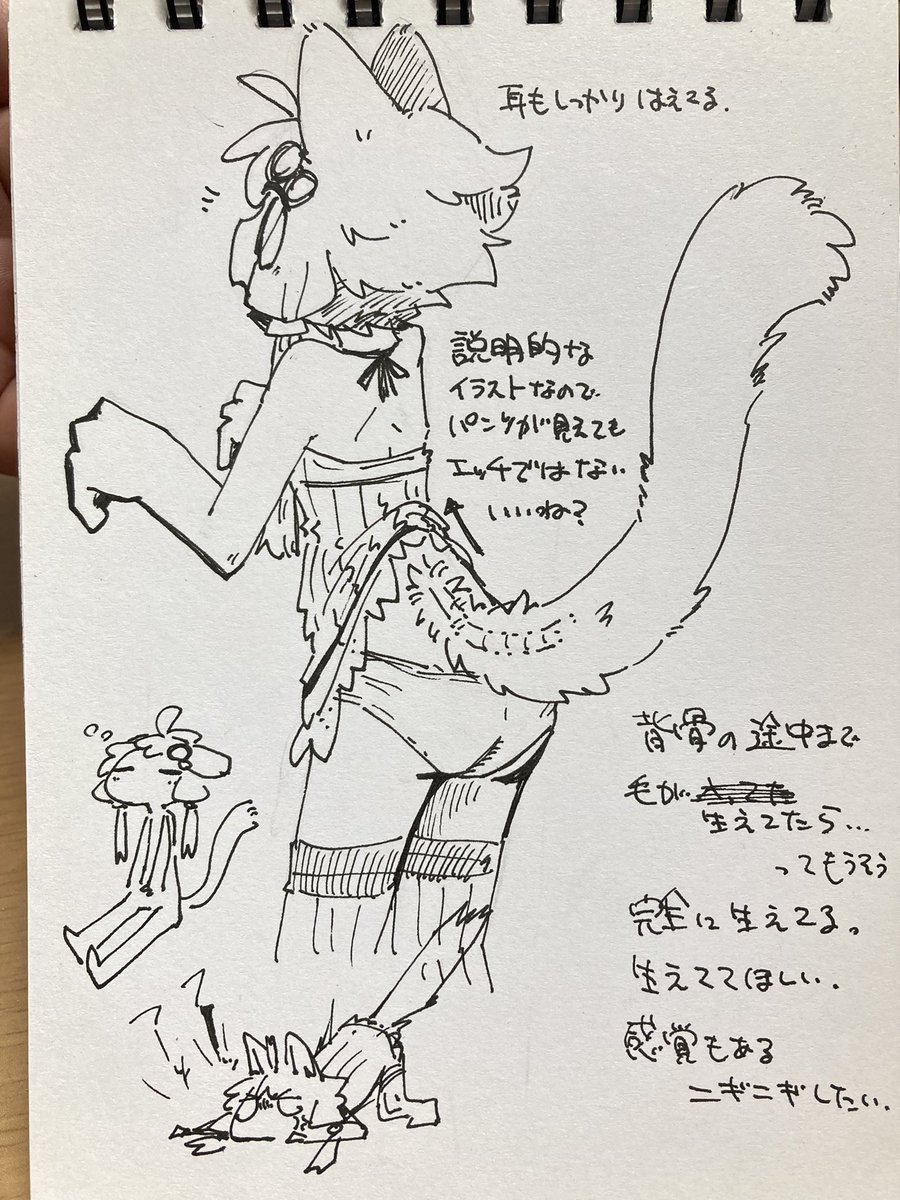 耳もしっかりはえてる.
説明的な
イラストなので
パンツが見えても
エッチではない
いいね?
背骨の途中まで
毛が
生えてたら...
ってもうそう
完全に生えてる。
生えててほしい.
感覚もある
ニギニギしたい.